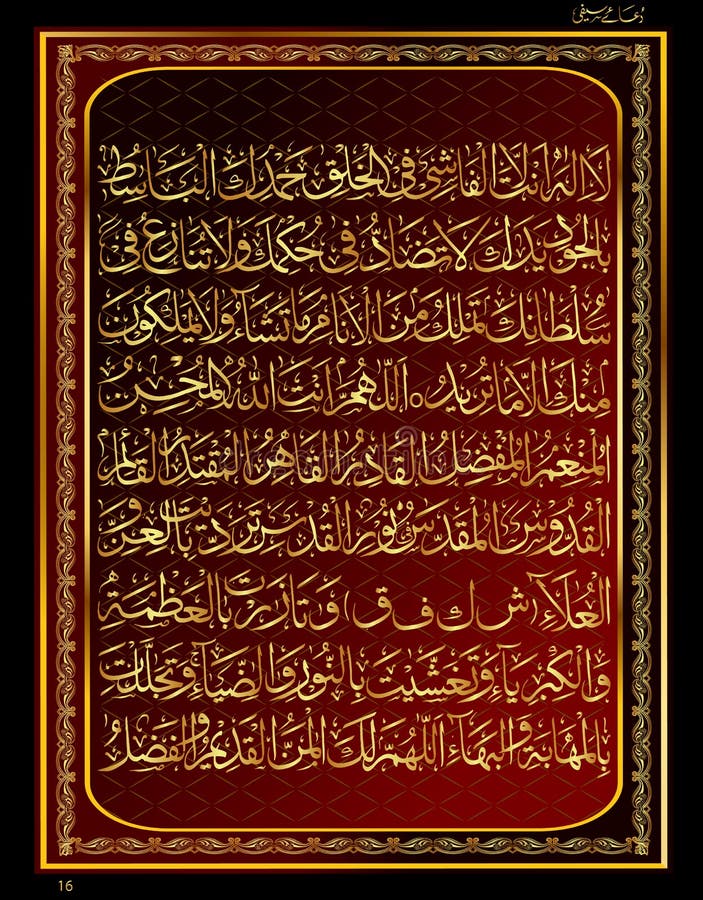 دعائے سیفی
لَا اِلٰهَ اِلَّا اَنْتَ الْفَاشِیْ فِی الْخَلْقِ حَمْدُكَ الْبَاسِطُ
بِالْجُوْدِ یَدَكَ لَا تُضَادُّ فِیْ حُكْمِكَ وَلَا تُنَازَعُ فِیْ
سُلْطَانِكَ تَمْلِكُ مِنَ الْاَنَامِ مَا تَشَآءُ وَلَا یَمْلِكُوْنَ
مِنْكَ اِلَّا مَا تُرِیْدُ ہ اَللّٰهُمَّ اَنْتَ اللّٰهُ الْمُحْسِنُ
الْمُنْعِمُ الْمُفْضِلُ الْقَادِرُ الْقَاهِرُ الْمُقْتَدِرُ الْقَآئِمُ
الْقُدُّوْسُ الْمُقَدَّسُ نُوْرُ الْقُدْسِ تَرَدَّیْتَ بِالْعِزِّ وَ
الْعُلَآءِ (ش ك ف ق) وَتَاَزَّرْتَ بِالْعَظَمَةِ
وَالْكِبْرِیَآءِ وَتَغَشَّیْتَ بِالنُّوْرِ وَالضِّیَآءِ وَتَجَلَّلْتَ
بِالْمَهَابَةِ وَالْبَهَآءِ اَللّٰهُمَّ لَكَ الْمَنُّ الْقَدِیْمُ وَالْفَضْلُ
16